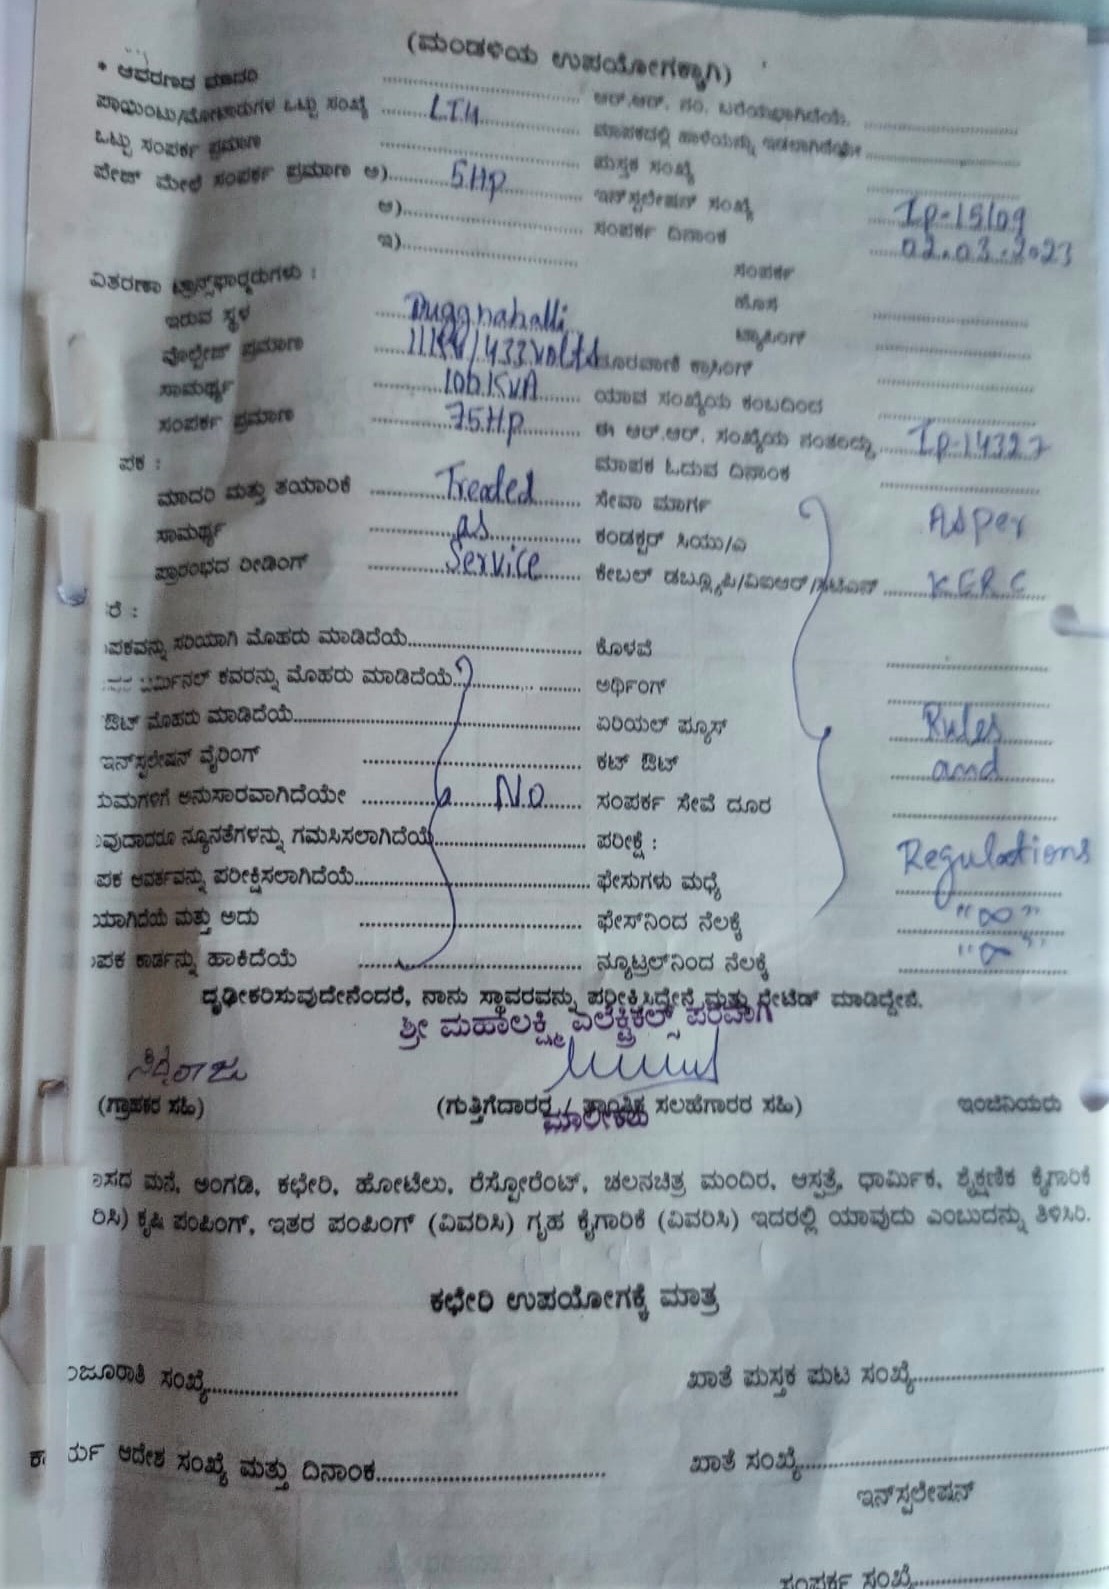 (ಮಂಡಳಿಯ ಉಪಯೋಗಕ್ಕಾಗಿ)
* ಆವರಣದ ಮಾದರಿ .......... ಆರ್.ಆರ್. ನಂ. ಬರೆಯಲಾಗಿದೆಯೆ. ..........
ಪಾಯಿಂಟು/ಮೋಟಾರುಗಳ ಒಟ್ಟು ಸಂಖ್ಯೆ .......... ಮಾಪಕದಲ್ಲಿ ಹಾಳೆಯನ್ನು ಇಡಲಾಗಿದೆಯೇ ..........
ಒಟ್ಟು ಸಂಪರ್ಕ ಪ್ರಮಾಣ .......... ಪುಸ್ತಕ ಸಂಖ್ಯೆ ..........
ಪೇಜ್ ಮೇಲೆ ಸಂಪರ್ಕ ಪ್ರಮಾಣ ಅ) 5Hp ಇನ್‌ಸ್ಟಲೇಷನ್ ಸಂಖ್ಯೆ Ip-15109
ಆ).......... ಸಂಪರ್ಕ ದಿನಾಂಕ 02.03.2023
ಇ).......... ಸಂಪರ್ಕ
ವಿತರಣಾ ಟ್ರಾನ್ಸ್‌ಫಾರ್ಮರುಗಳು : ಹೊಸ ..........
ಇರುವ ಸ್ಥಳ Duggnahalli ಟ್ಯಾಪಿಂಗ್ ..........
ವೋಲ್ಟೇಜ್ ಪ್ರಮಾಣ 433volts ಕ್ರಾಸಿಂಗ್ ..........
ಸಾಮರ್ಥ್ಯ 100KVA ಯಾವ ಸಂಖ್ಯೆಯ ಕಂಬದಿಂದ ..........
ಸಂಪರ್ಕ ಪ್ರಮಾಣ 75Hp ಈ ಆರ್.ಆರ್. ಸಂಖ್ಯೆಯ ನಂತರದ್ದು Ip-14327
ಪಕ : ಮಾಪಕ ಓದುವ ದಿನಾಂಕ ..........
ಮಾದರಿ ಮತ್ತು ತಯಾರಿಕೆ Treated ಸೇವಾ ಮಾರ್ಗ As per
ಸಾಮರ್ಥ್ಯ as ಕಂಡಕ್ಟರ್ ಸಿಯು/ಎ
ಪ್ರಾರಂಭದ ರೀಡಿಂಗ್ Service ಕೇಬಲ್ ಡಬ್ಲ್ಯೂಪಿ/ವಿಐಆರ್/ K E R C
ರೆ :
ಪಕವನ್ನು ಸರಿಯಾಗಿ ಮೊಹರು ಮಾಡಿದೆಯೆ.......... ಕೊಳವೆ ..........
ಟರ್ಮಿನಲ್ ಕವರನ್ನು ಮೊಹರು ಮಾಡಿದೆಯೆ.......... ಅರ್ಥಿಂಗ್ ..........
ಔಟ್ ಮೊಹರು ಮಾಡಿದೆಯೆ.......... ಏರಿಯಲ್ ಫ್ಯೂಸ್ Rules
ಇನ್‌ಸ್ಟಲೇಷನ್ ವೈರಿಂಗ್ .......... ಕಟ್ ಔಟ್ and
ಯಮಗಳಿಗೆ ಅನುಸಾರವಾಗಿದೆಯೇ .......... No ಸಂಪರ್ಕ ಸೇವೆ ದೂರ ..........
ವುದಾದರೂ ನ್ಯೂನತೆಗಳನ್ನು ಗಮನಿಸಲಾಗಿದೆಯೆ.......... ಪರೀಕ್ಷೆ : Regulations
ಪಕ ಆವರ್ತವನ್ನು ಪರೀಕ್ಷಿಸಲಾಗಿದೆಯೆ.......... ಫೇಸುಗಳು ಮಧ್ಯೆ ..........
ಯಾಗಿದೆಯೆ ಮತ್ತು ಅದು .......... ಫೇಸ್‌ನಿಂದ ನೆಲಕ್ಕೆ "∞"
ಪಕ ಕಾರ್ಡನ್ನು ಹಾಕಿದೆಯೆ .......... ನ್ಯೂಟ್ರಲ್‌ನಿಂದ ನೆಲಕ್ಕೆ "∞"
ದೃಢೀಕರಿಸುವುದೇನೆಂದರೆ, ನಾನು ಸ್ಥಾವರವನ್ನು ಪರೀಕ್ಷಿಸಿದ್ದೇನೆ ಮತ್ತು ರೇಟೆಡ್ ಮಾಡಿದ್ದೇನೆ.
ಶ್ರೀ ಮಹಾಲಕ್ಷ್ಮಿ ಎಲೆಕ್ಟ್ರಿಕಲ್ಸ್ ಪರವಾಗಿ
ಸಿದ್ದರಾಜು
(ಗ್ರಾಹಕರ ಸಹಿ) (ಗುತ್ತಿಗೆದಾರರ / ತಾಂತ್ರಿಕ ಸಲಹೆಗಾರರ ಸಹಿ) ಇಂಜಿನಿಯರು
ಮಾಲೀಕರು
ಾಸದ ಮನೆ, ಅಂಗಡಿ, ಕಛೇರಿ, ಹೋಟೆಲು, ರೆಸ್ಟೋರೆಂಟ್, ಚಲನಚಿತ್ರ ಮಂದಿರ, ಆಸ್ಪತ್ರೆ, ಧಾರ್ಮಿಕ, ಶೈಕ್ಷಣಿಕ ಕೈಗಾರಿಕೆ
ರಿಸಿ) ಕೃಷಿ ಪಂಪಿಂಗ್, ಇತರ ಪಂಪಿಂಗ್ (ವಿವರಿಸಿ) ಗೃಹ ಕೈಗಾರಿಕೆ (ವಿವರಿಸಿ) ಇದರಲ್ಲಿ ಯಾವುದು ಎಂಬುದನ್ನು ತಿಳಿಸಿರಿ.
ಕಛೇರಿ ಉಪಯೋಗಕ್ಕೆ ಮಾತ್ರ
ಂಜೂರಾತಿ ಸಂಖ್ಯೆ.......... ಖಾತೆ ಪುಸ್ತಕ ಪುಟ ಸಂಖ್ಯೆ..........
ಕಾರ್ಯ ಆದೇಶ ಸಂಖ್ಯೆ ಮತ್ತು ದಿನಾಂಕ.......... ಖಾತೆ ಸಂಖ್ಯೆ..........
ಇನ್‌ಸ್ಟಲೇಷನ್
ಸಂಪರ್ಕ ಸಂಖ್ಯೆ..........